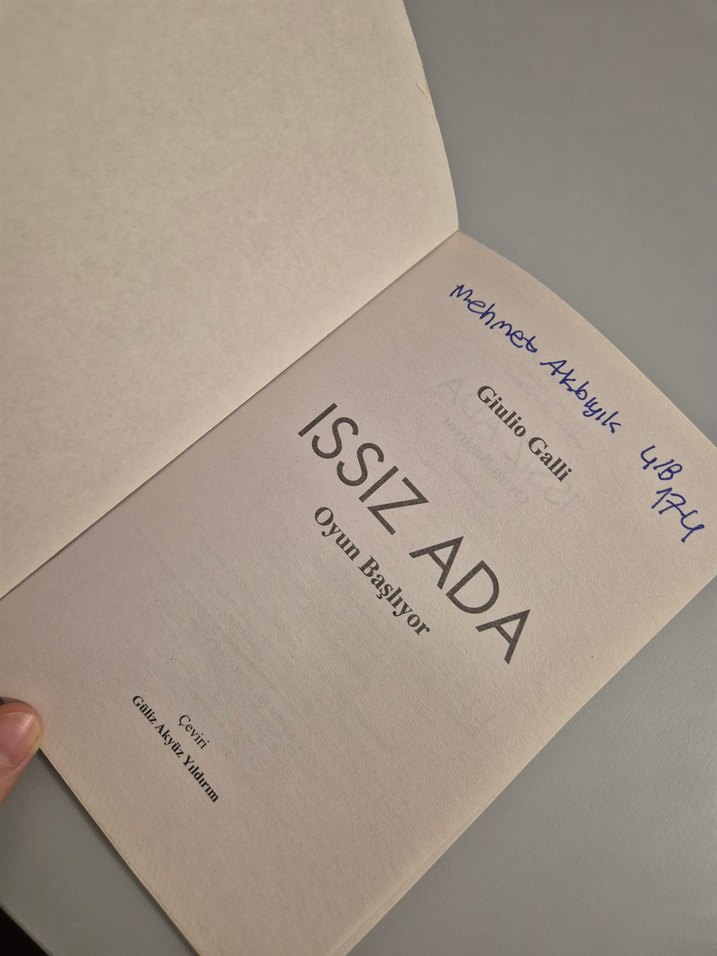 Mehmet Akbıyık 4/B
174
Giulio Galli
ISSIZ ADA
Oyun Başlıyor
Çeviri
Güliz Akyüz Yıldırım